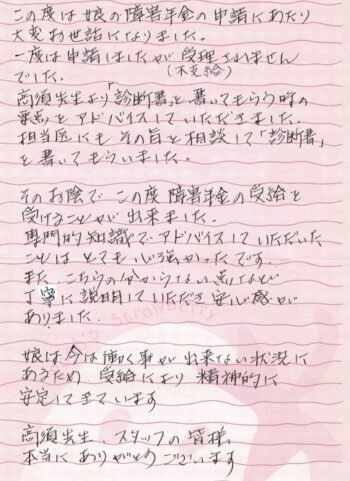 この度は娘の障害年金の申請にあたり
大変お世話になりました。
一度は申請しましたが受理されません
(不支給)
でした。
高須先生より「診断書」を書いてもらう時の
要点をアドバイスしていただきました。
担当医にもその旨を相談して「診断書」
を書いてもらいました。
そのお陰でこの度障害年金の受給を
受けることが出来ました。
専門的知識でアドバイスしていただいた
ことはとても心強かったです。
また、こちらの分からない点など
丁寧に説明していただき安心感が
ありました。
Strawberry
娘は今は働く事が出来ない状況に
あるため受給により精神的に
安定してきています
高須先生、スタッフの皆様、
本当にありがとうございます